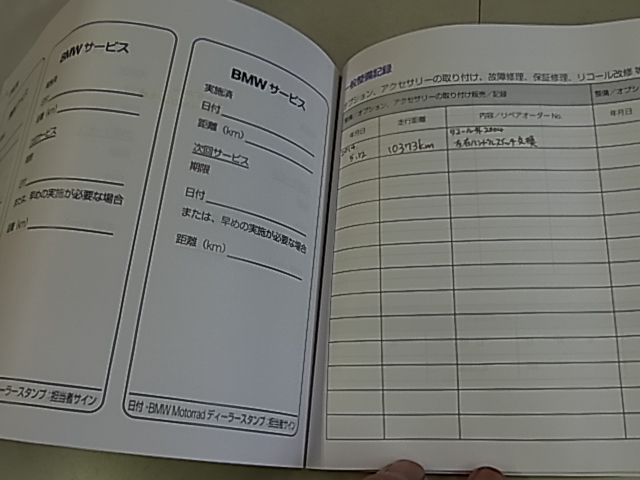 BMW サービス
距離（km）
または、早めの実施が必要な場合
距離（km）
ーラースタンプ／担当者サイン
BMW サービス
実施済
日付
距離（km）
次回サービス
期限
日付
または、早めの実施が必要な場合
距離（km）
日付・BMW Motorrad ディーラースタンプ／担当者サイン
一般整備記録
オプション、アクセサリーの取り付け、故障修理、保証修理、リコール改修
整備／オプション、アクセサリーの取り付け販売／記録
整備／オプシ
年月日
走行距離
内容／リペアオーダーNo.
年月日
リコール
5.12
10373km
左右ハンドルスイッチ交換